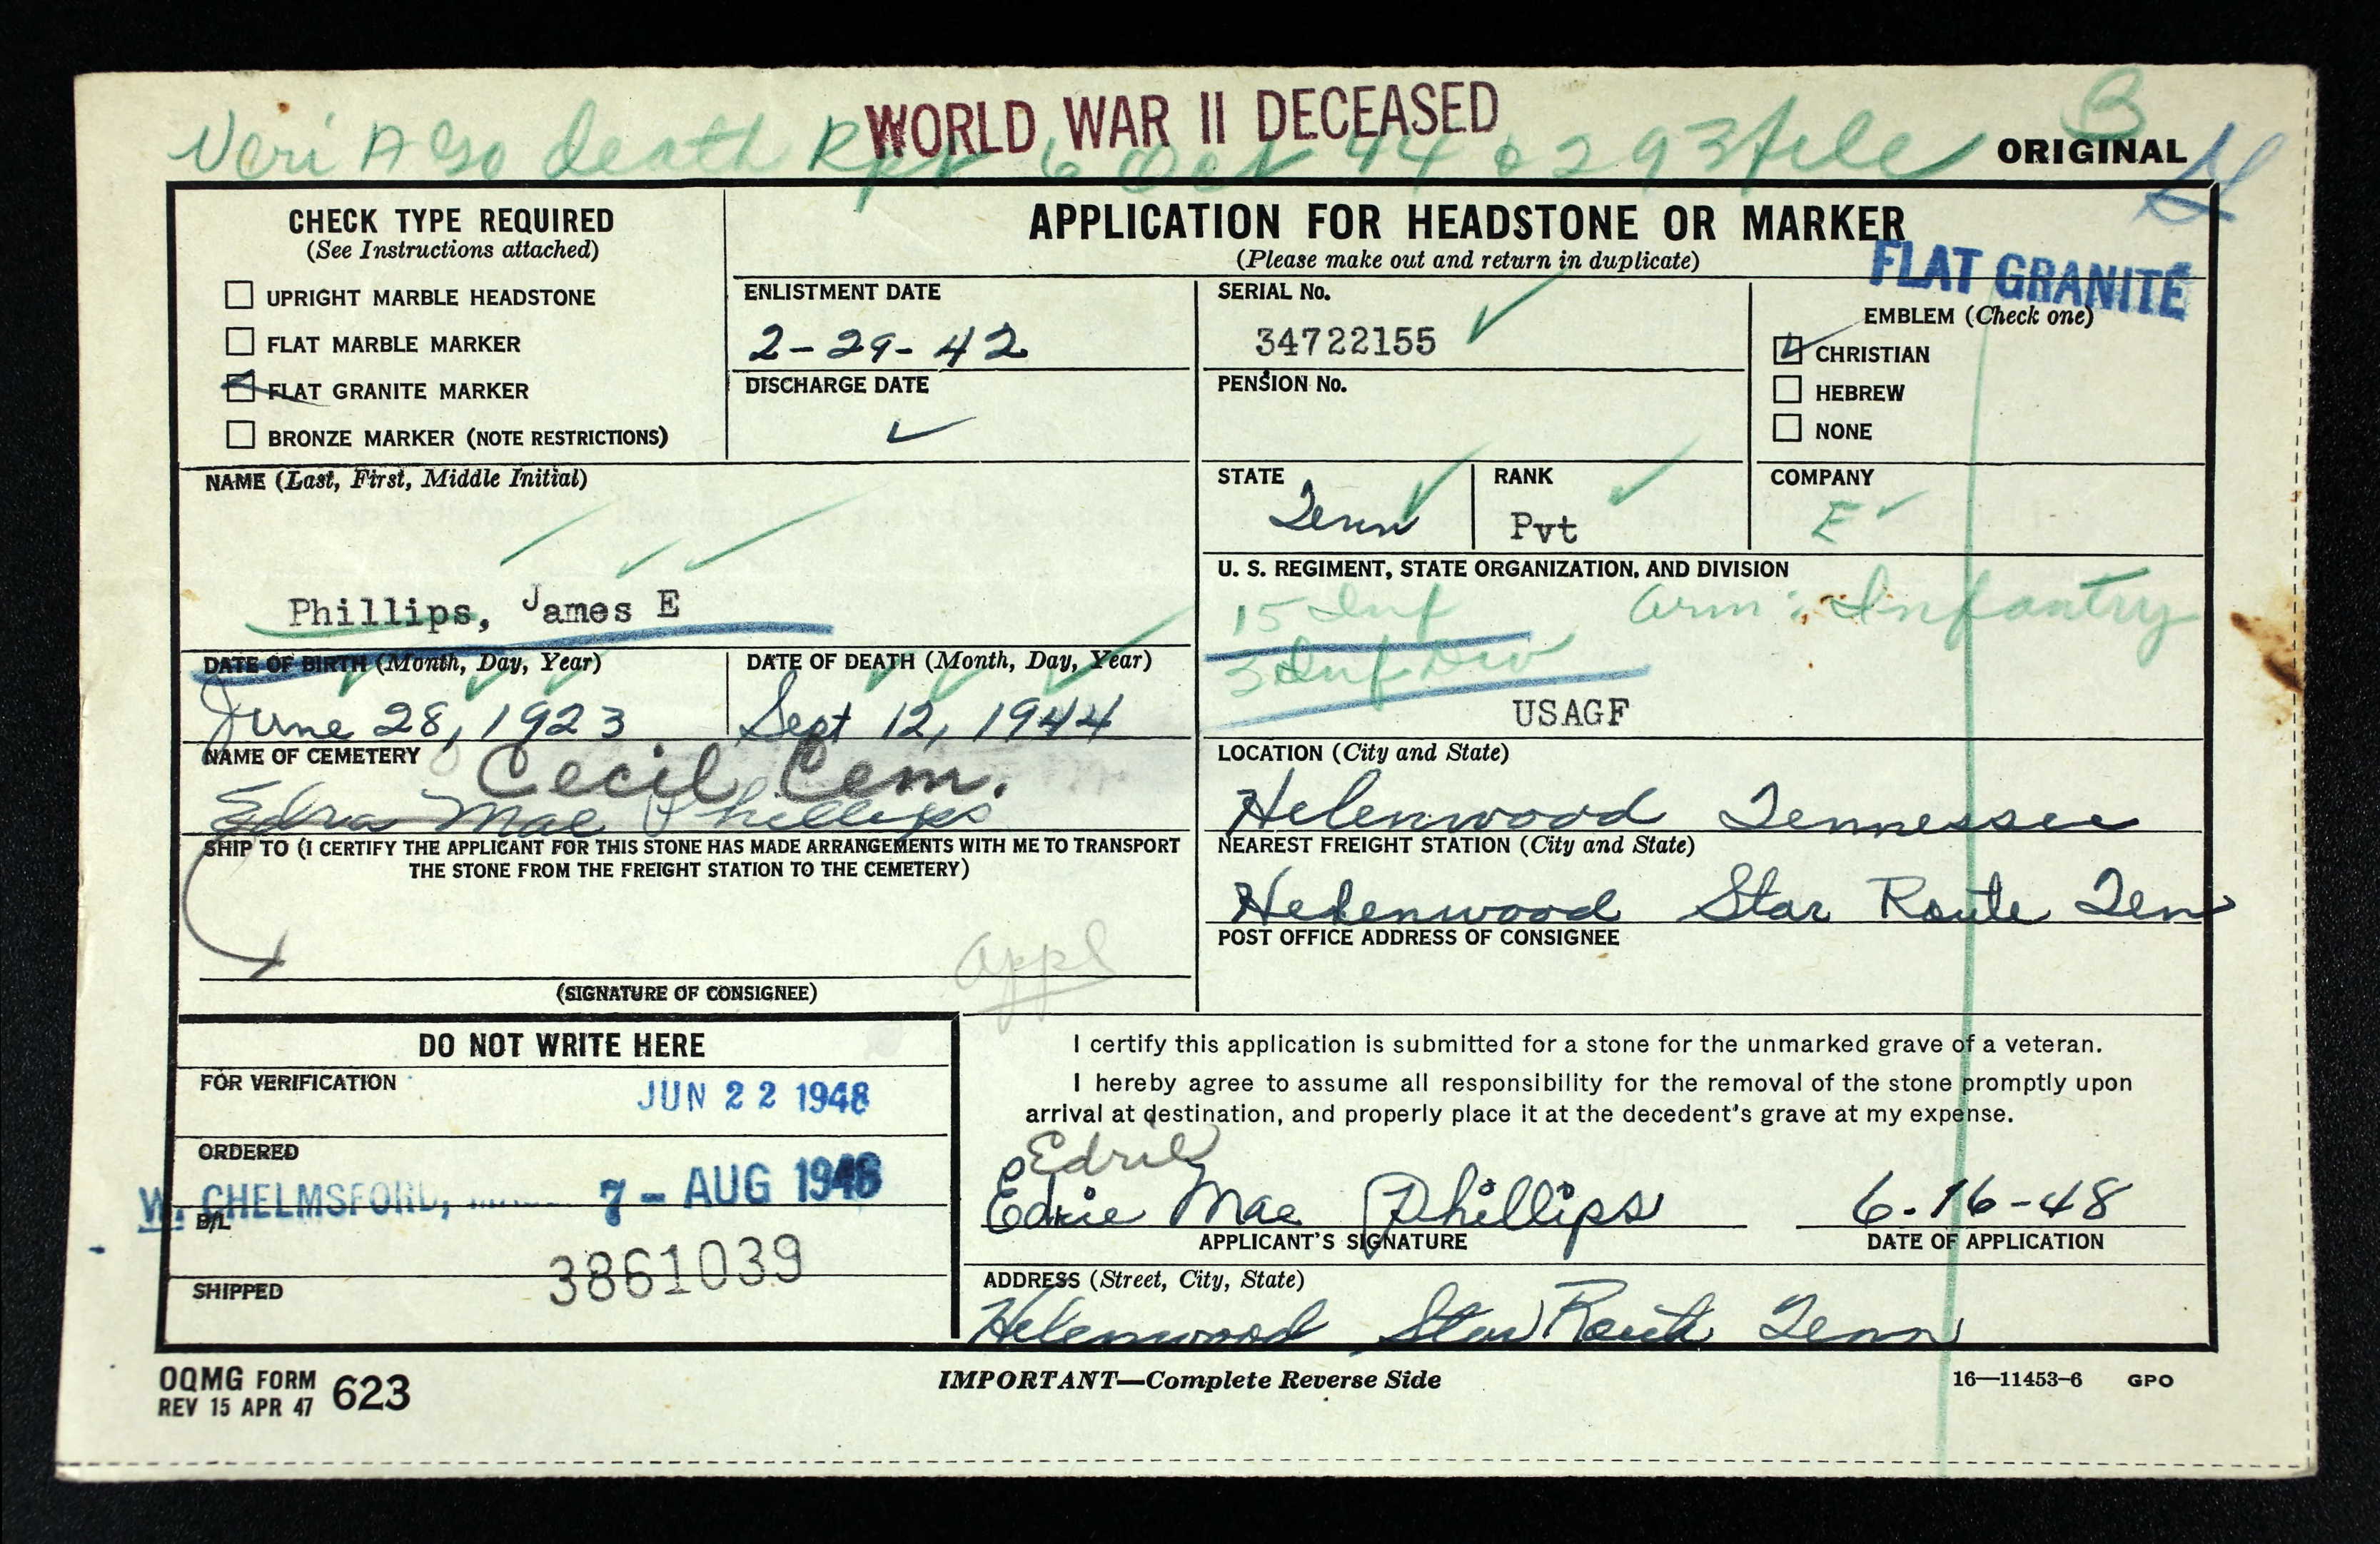 WORLD WAR II DECEASED
B
Veri Ago death Rpt 6 Oct 44 & 293 file
ORIGINAL
CHECK TYPE REQUIRED
(See Instructions attached)
UPRIGHT MARBLE HEADSTONE
FLAT MARBLE MARKER
FLAT GRANITE MARKER
BRONZE MARKER (NOTE RESTRICTIONS)
APPLICATION FOR HEADSTONE OR MARKER
(Please make out and return in duplicate)
FLAT GRANITE
ENLISTMENT DATE
2-29-42
DISCHARGE DATE
SERIAL No.
34722155
PENSION No.
EMBLEM (Check one)
CHRISTIAN
HEBREW
NONE
NAME (Last, First, Middle Initial)
Phillips, James E
STATE
Tenn
RANK
Pvt
COMPANY
E
U. S. REGIMENT, STATE ORGANIZATION, AND DIVISION
15 Inf Arm: Infantry
3 Inf Div
USAGF
DATE OF BIRTH (Month, Day, Year)
June 28, 1923
DATE OF DEATH (Month, Day, Year)
Sept 12, 1944
NAME OF CEMETERY
Cecil Cem.
Edra Mae Phillips
LOCATION (City and State)
Helenwood Tennessee
SHIP TO (I CERTIFY THE APPLICANT FOR THIS STONE HAS MADE ARRANGEMENTS WITH ME TO TRANSPORT
THE STONE FROM THE FREIGHT STATION TO THE CEMETERY)
appl
(SIGNATURE OF CONSIGNEE)
NEAREST FREIGHT STATION (City and State)
Helenwood Star Route Tenn
POST OFFICE ADDRESS OF CONSIGNEE
DO NOT WRITE HERE
FOR VERIFICATION
JUN 22 1948
ORDERED
W. CHELMSFORD, 7 - AUG 1948
B/L
3861039
SHIPPED
I certify this application is submitted for a stone for the unmarked grave of a veteran.
I hereby agree to assume all responsibility for the removal of the stone promptly upon
arrival at destination, and properly place it at the decedent's grave at my expense.
Edrie
Edrie Mae Phillips
6-16-48
APPLICANT'S SIGNATURE
DATE OF APPLICATION
ADDRESS (Street, City, State)
Helenwood Star Route Tenn
OQMG FORM 623
REV 15 APR 47
IMPORTANT—Complete Reverse Side
16—11453-6 GPO